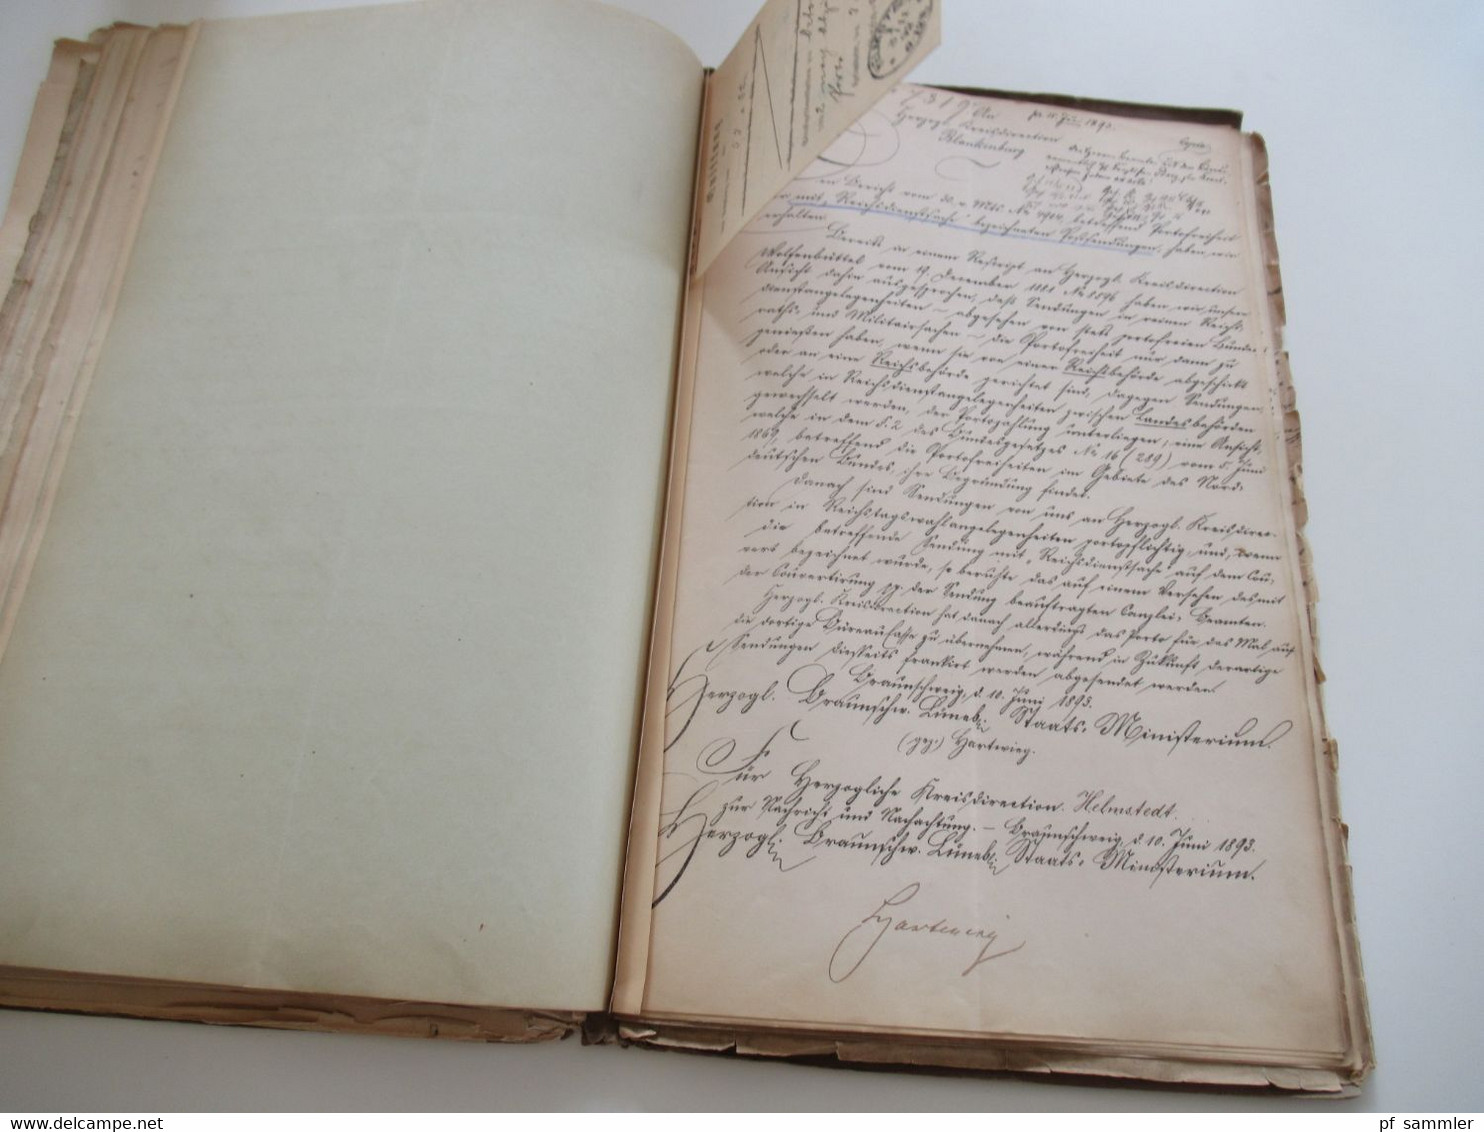 Quittung
No 7319. An pr. 11. Juni 1893.
Herzogl. Kreisdirection
Blankenburg
Copia.
Den Bericht vom 30. v. Mts. No 4914, betreffend Portofreiheit
der mit „Reichsdienstsache" bezeichneten Postsendungen, haben wir
erhalten.
Bereits in einem Reskript an Herzogl. Kreisdirection
Wolfenbüttel vom 19. December 1881 No 1896 haben wir unsere
Ansicht dahin ausgesprochen, daß Sendungen in reinen Reichs-
dienstangelegenheiten – abgesehen von stets portofreien Bundes-
raths- und Militairsachen – die Portofreiheit nur dann zu
genießen haben, wenn sie von einer Reichsbehörde abgeschickt
oder an eine Reichsbehörde gerichtet sind, dagegen Sendungen,
welche in Reichsdienstangelegenheiten zwischen Landesbehörden
gewechselt werden, der Portozahlung unterliegen; eine Ansicht,
welche in dem §. 2 des Bundesgesetzes No 16 (289) vom 5. Juni
1869, betreffend die Portofreiheiten im Gebiete des Nord-
deutschen Bundes, ihre Begründung findet.
Danach sind Sendungen von uns an Herzogl. Kreisdirec-
tion in Reichstagswahlangelegenheiten portopflichtig, und, wenn
die betreffende Sendung mit „Reichsdienstsache" auf dem Cou-
vert bezeichnet wurde, so beruhte das auf einem Versehen des mit
der Couvertirung pp. der Sendung beauftragten Canzlei-Beamten.
Herzogl. Kreisdirection hat danach allerdings das Porto für das Mal auf
die dortige Büreaucasse zu übernehmen, während in Zukunft derartige
Sendungen diesseits frankirt werden abgesendet werden.
Braunschweig, d. 10. Juni 1893.
Herzogl. Braunschw. Lüneb. Staats-Ministerium.
(gez.) Hartwieg.
Für Herzogliche Kreisdirection Helmstedt
zur Nachricht und Nachachtung. – Braunschweig, d. 10. Juni 1893.
Herzogl. Braunschw. Lüneb. Staats-Ministerium.
Hartwieg
www.delcampe.net
pf_sammler